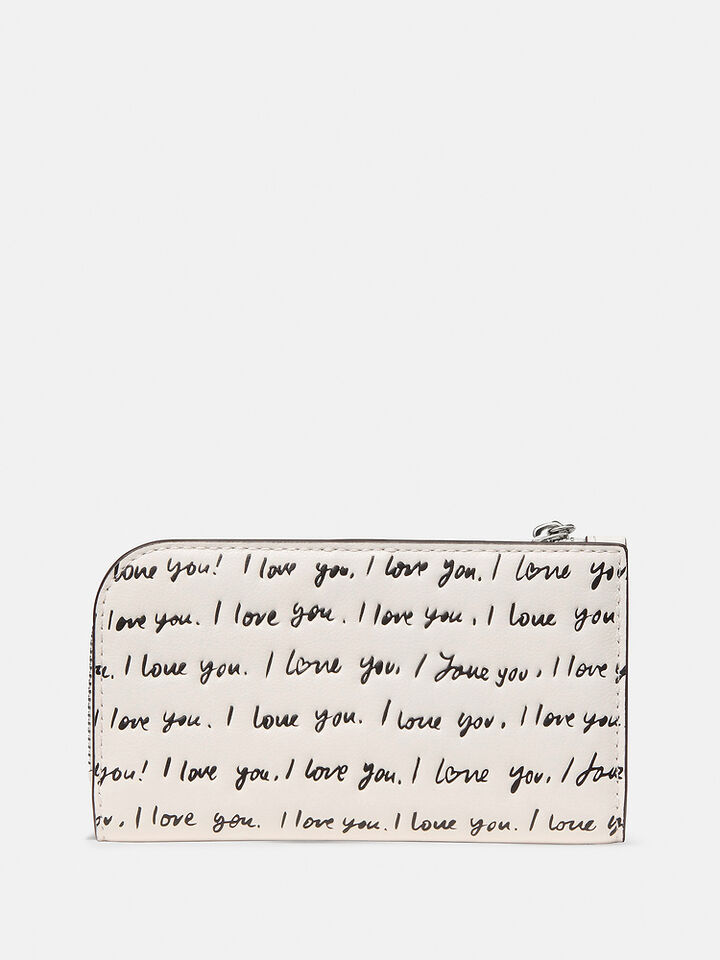 love you! I love you. I love you. I love you
I love you. I love you. I love you. I love you
. I love you. I love you. I love you. I love y
I love you. I love you. I love you. I love you.
you! I love you. I love you. I love you. I love
ou. I love you. I love you. I love you. I love y